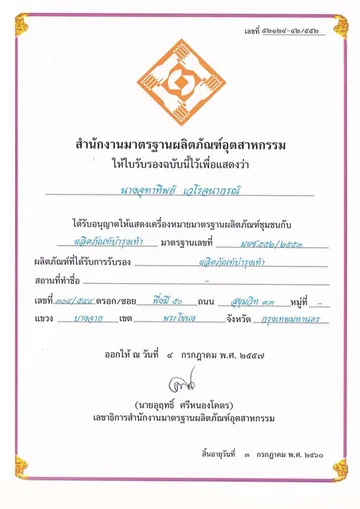 เลขที่ ๕๒๑๒๔-๔๒/๕๕๒
สำนักงานมาตรฐานผลิตภัณฑ์อุตสาหกรรม
ให้ใบรับรองฉบับนี้ไว้เพื่อแสดงว่า
นางจุฑาทิพย์ เวโรจนากรณ์
ได้รับอนุญาตให้แสดงเครื่องหมายมาตรฐานผลิตภัณฑ์ชุมชนกับ
ผลิตภัณฑ์บำรุงเท้า มาตรฐานเลขที่ มผช๕๕๒/๒๕๕๓
ผลิตภัณฑ์ที่ได้รับการรับรอง ผลิตภัณฑ์บำรุงเท้า
สถานที่ทำชื่อ -
เลขที่ ๓๐๔/๕๔๔ ตรอก/ซอย พึ่งมี ๕๐ ถนน สุขุมวิท ๙๓ หมู่ที่ -
แขวง บางจาก เขต พระโขนง จังหวัด กรุงเทพมหานคร
ออกให้ ณ วันที่ ๔ กรกฎาคม พ.ศ. ๒๕๕๗
(นายอุฤทธิ์ ศรีหนองโคตร)
เลขาธิการสำนักงานมาตรฐานผลิตภัณฑ์อุตสาหกรรม
สิ้นอายุวันที่ ๓ กรกฎาคม พ.ศ. ๒๕๖๐